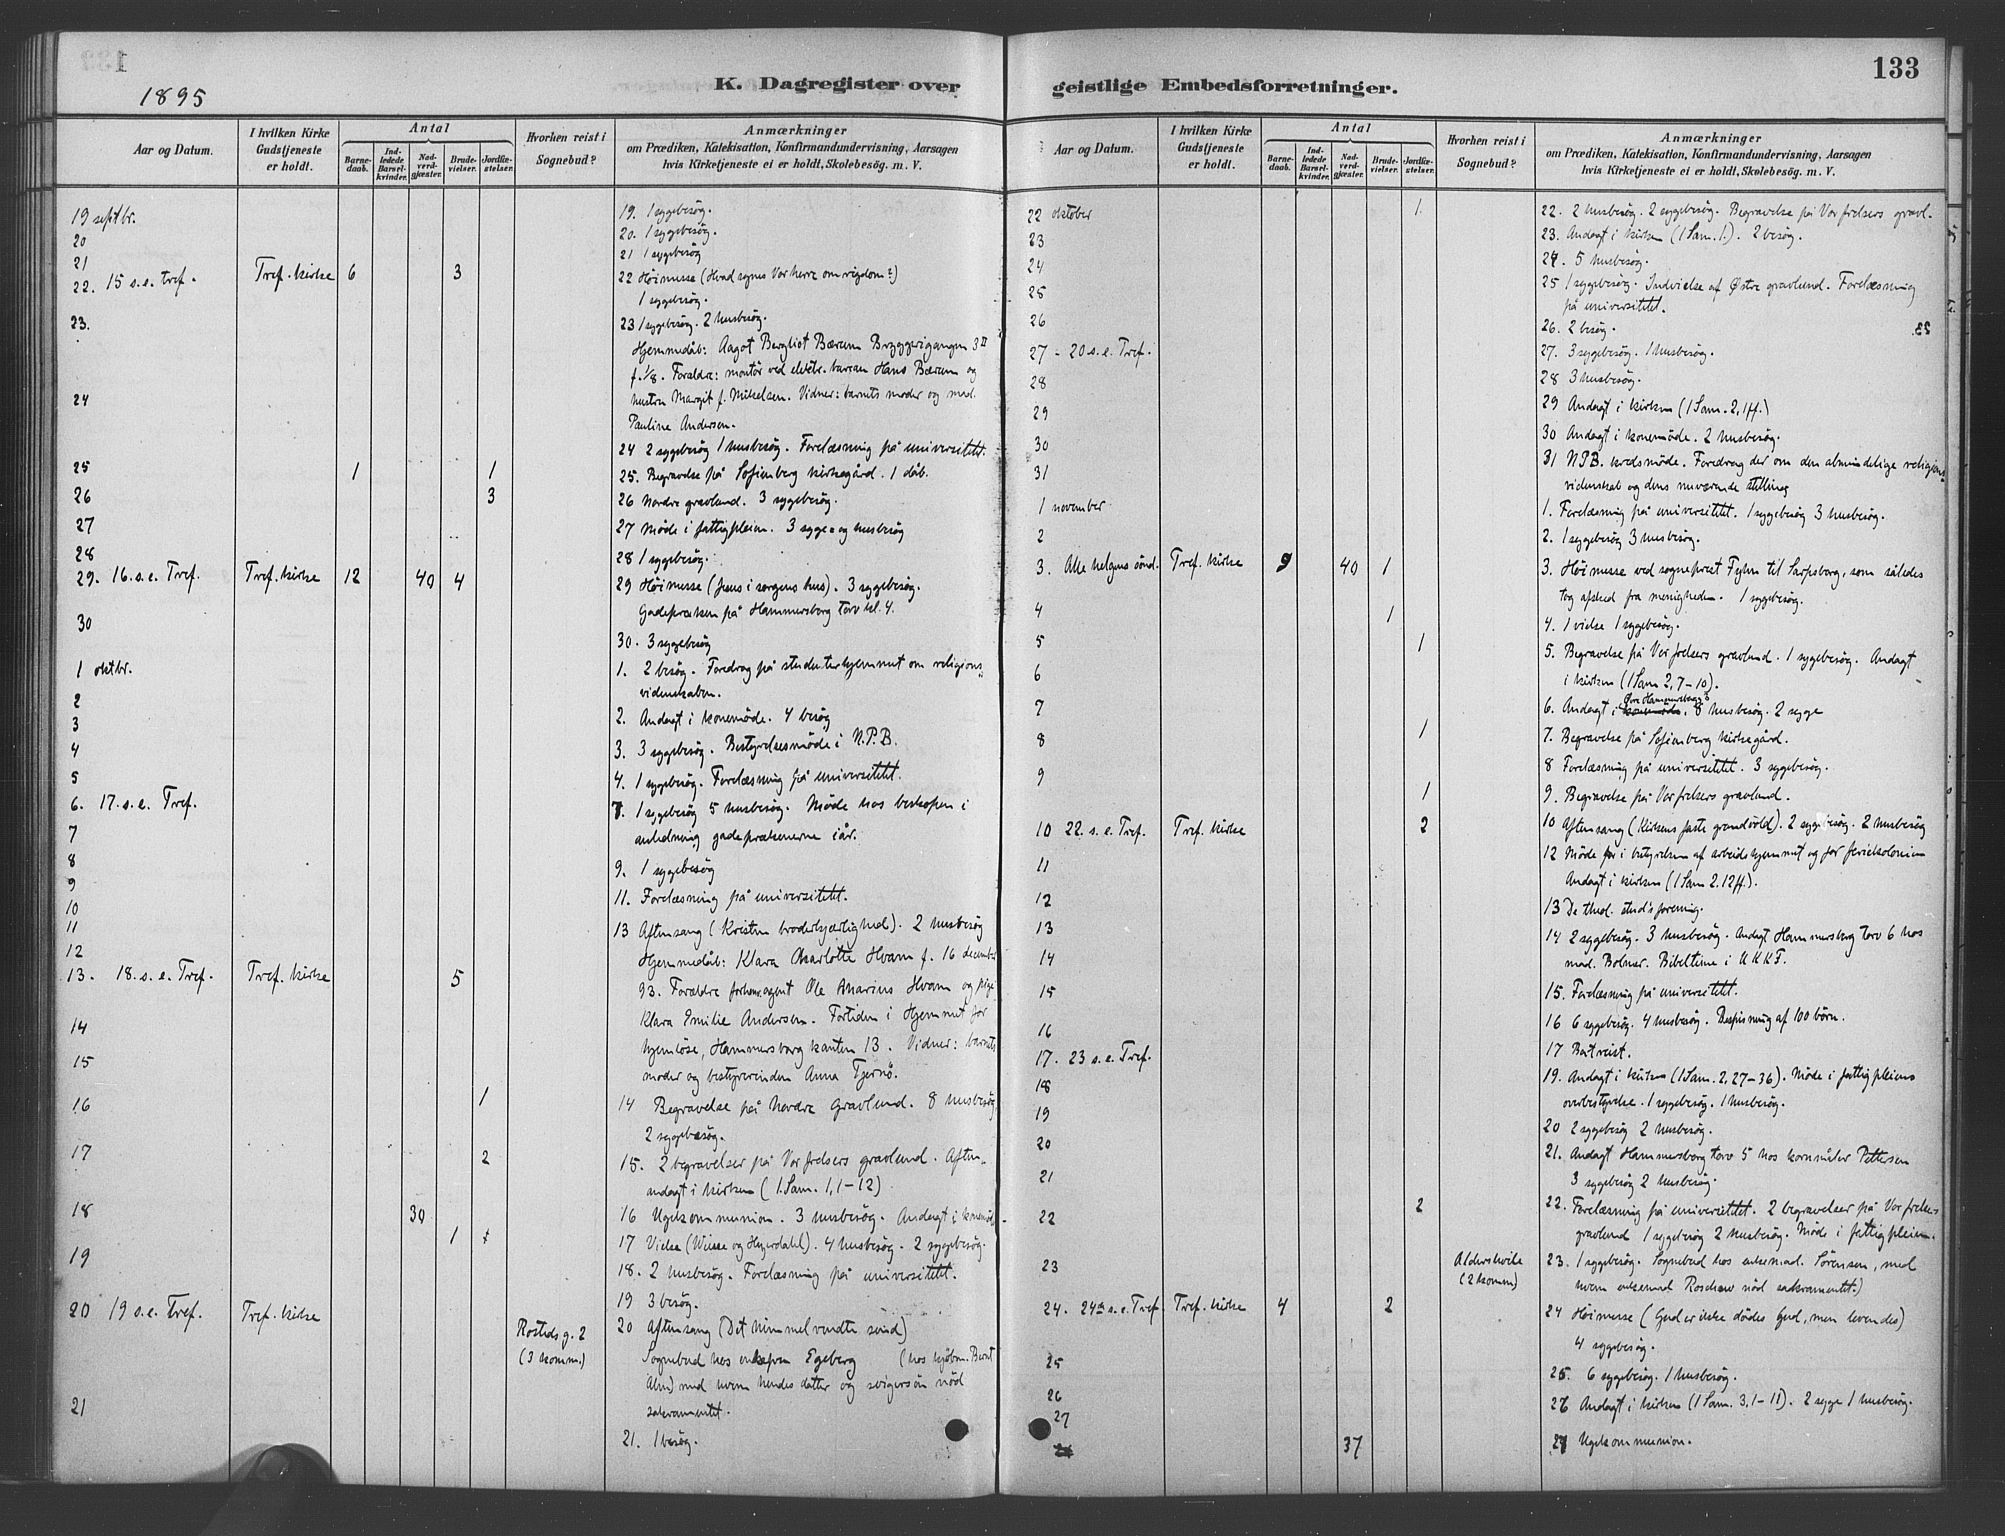 1895
K. Dagregister over
Aar og Datum.
I hvilken Kirke Gudstjeneste er holdt.
Antal
Barnedaab.
Indledede Barselkvinder.
Nadverdgjæster.
Brudevielser.
Jordfæstelser.
Hvorhen reist i Sognebud?
Anmærkninger
om Prædiken, Katekisation, Konfirmandundervisning, Aarsagen
hvis Kirketjeneste ei er holdt, Skolebesøg. m. V.
19 septbr.
19. 1 sygebesög.
20
20. 1 sygebesög.
21
21 1 sygebesög
22. 15 s.e. tref. Tref. kirke 6 3
22 Höimesse (Hvad synes Vor herre om rigdom?)
1 sygebesög.
23.
23 1 sygebesög. 2 husbesög.
Hjemmedåb: Aagot Bergliot Bærum Bryggerigangen 3 II
f. 1/8. Forældre: montör ved elektr. bureau Hans Bærum og
hustru Margit f. Mikelsen. Vidner: barnets moder og mad.
Pauline Andersen.
24
24 2 sygebesög 1 husbesög. Forelæsning på universitetet.
25 1 1
25. Begravelse på Sofienberg kirkegård. 1 dåb.
26 3
26 Nordre gravlund. 3 sygebesög.
27
27 Möde i fattigpleien. 3 syge- og husbesög
28
28 1 sygebesög.
29. 16. s.e. Tref. Tref. kirke 12 40 4
29 Höimesse (Jesus i sorgens hus). 3 sygebesög.
Gadepræken på Hammersborg torv kl. 4.
30
30. 3 sygebesög
1 oktbr.
1. 2 besög. Foredrag på studenterhjemmet om religions-
videnskaben.
2
2. Andagt i konemöde. 4 besög
3
3. 3 sygebesög. Bestyrelsesmöde i N.P.B.
4
4. 1 sygebesög. Forelæsning på universitetet.
5
6. 17. s.e. Tref.
7. 1 sygebesög 5 husbesög. Möde hos biskopen i
anledning gadeprækenerne iår.
7
8
9
9. 1 sygebesög
10
11
11. Forelæsning på universitetet.
12
13. 18. s.e. Tref. Tref. kirke 5
13 Aftensang (Kristen broderkjærlighed). 2 husbesög
Hjemmedåb: Klara Charlotte Hvam f. 16 december
93. Forældre agent Ole Anarius Hvam og pige
Klara Emilie Andersen. Fortiden i Hjemmet for
hjemlöse, Hammersborg kanten 13. Vidner: barnets
moder og bestyrerinden Anna Tjernö.
14
15
16 1
14 Begravelse på Nordre Gravlund. 8 husbesög,
2 sygebesög.
17 2
15. 2 begravelser på Vor frelsers gravlund. Aften-
andagt i kirken (1. Sam. 1, 1–12)
18 30
16 Ugekommunion. 3 husbesög. Andagt i konemöde
1 1
17 Vielse (Weisse og Heyerdahl). 4 husbesög. 2 sygebesög.
19
18. 2 husbesög. Forelæsning på universitetet.
19 3 besög.
20 19 s.e. Tref. Tref. kirke
Rosteds g. 2
(3 komm.)
20 Aftensang (Det himmelvendte sind)
Sognebud hos enkefru Egeberg (hos kjöbm. Bernt
Alm) med hvem hendes datter og svigersön nöd
sakramentet.
21
21. 1 besög.
133
geistlige Embedsforretninger.
Aar og Datum.
I hvilken Kirke Gudstjeneste er holdt.
Antal
Barnedaab.
Indledede Barselkvinder.
Nadverdgjæster.
Brudevielser.
Jordfæstelser.
Hvorhen reist i Sognebud?
Anmærkninger
om Prædiken, Katekisation, Konfirmandundervisning, Aarsagen
hvis Kirketjeneste ei er holdt, Skolebesøg. m. V.
22 oktober 1.
22. 2 husbesög. 2 sygebesög. Begravelse på Vor frelsers gravl.
23
23. Andagt i kirken (1 Sam. 1.). 2 besög.
24
24. 5 husbesög.
25
25 1 sygebesög. Indvielse af Østre gravlund. Forelæsning
på universitetet.
26
26. 2 besög.
27 - 20 s.e. Tref.
27. 3 sygebesög. 1 husbesög.
28
28 3 husbesög.
29
29 Andagt i kirken (1 Sam. 2, 1ff.)
30
30 Andagt i konemöde. 2 husbesög.
31
31 N.P.B. kredsmöde. Foredrag der om den almindelige religions-
videnskab og dens nuværende stilling
1 november
1. Forelæsning på universitetet. 1 sygebesög 3 husbesög.
2
2. 1 sygebesög 3 husbesög.
3. Alle helgens sönd. Tref. kirke 9 40 1
3. Höimesse ved sogneprest Fyhn til Sarpsborg, som således
tog afsked fra menigheden. 1 sygebesög.
4 1
4. 1 vielse 1 sygebesög.
5 1
5. Begravelse på Vor frelsers gravlund. 1 sygebesög. Andagt
i kirken (1 Sam 2, 7–10).
6
6. Andagt i Övre Hammersborgg. 8 husbesög. 2 syge
7
7. Begravelse på Sofienberg kirkegård.
8 1
8 Forelæsning på universitetet. 3 sygebesög.
9 1
9. Begravelse på Vor frelsers gravlund.
10 22. s.e. Tref. Tref. kirke 2
10 Aftensang (Kirkens faste grundvold). 2 sygebesög. 2 husbesög
11
12 Möde i bestyrelsen af arbeidshjemmet og for feriekolonien
Andagt i kirken (1 Sam 2. 12ff.).
12
13
13 De theol. stud's forening.
14
14 2 sygebesög. 3 husbesög. Andagt Hammersborg torv 6 hos
mad. Bolner. Bibeltime i U.K.K.F.
15
15. Forelæsning på universitetet.
16
16 6 sygebesög. 4 husbesög. Bespisning af 100 börn.
17. 23 s.e. Tref.
17 Bortreist.
18
19
19. Andagt i kirken (1 Sam. 2, 27–36). Möde i fattigpleiens
overbestyrelse. 1 sygebesög. 1 husbesög.
20
20 2 sygebesög 2 husbesög.
21
21. Andagt Hammersborg torv 5 hos kornmåler Pettersen
3 sygebesög 2 husbesög.
22 2
22. Forelæsning på universitetet. 2 begravelser på Vor frelsers
gravlund 1 sygebesög 2 husbesög. Möde i fattigpleien.
23
Aldershvile
(2 komm)
23. 1 sygebesög. Sognebud hos enkemad. Sörensen, med
hvem enkemad Roschew nöd sakramentet.)
24. 24de s.e. Tref. Tref. kirke 4 2
24 Höimesse (Gud er ikke dödes Gud, men levendes)
4 sygebesög.
25
25. 6 sygebesög. 1 husbesög.
26
26 Andagt i kirken (1 Sam. 3, 1–11). 2 syge 1 husbesög.
27 37
27 Ugekommunion.